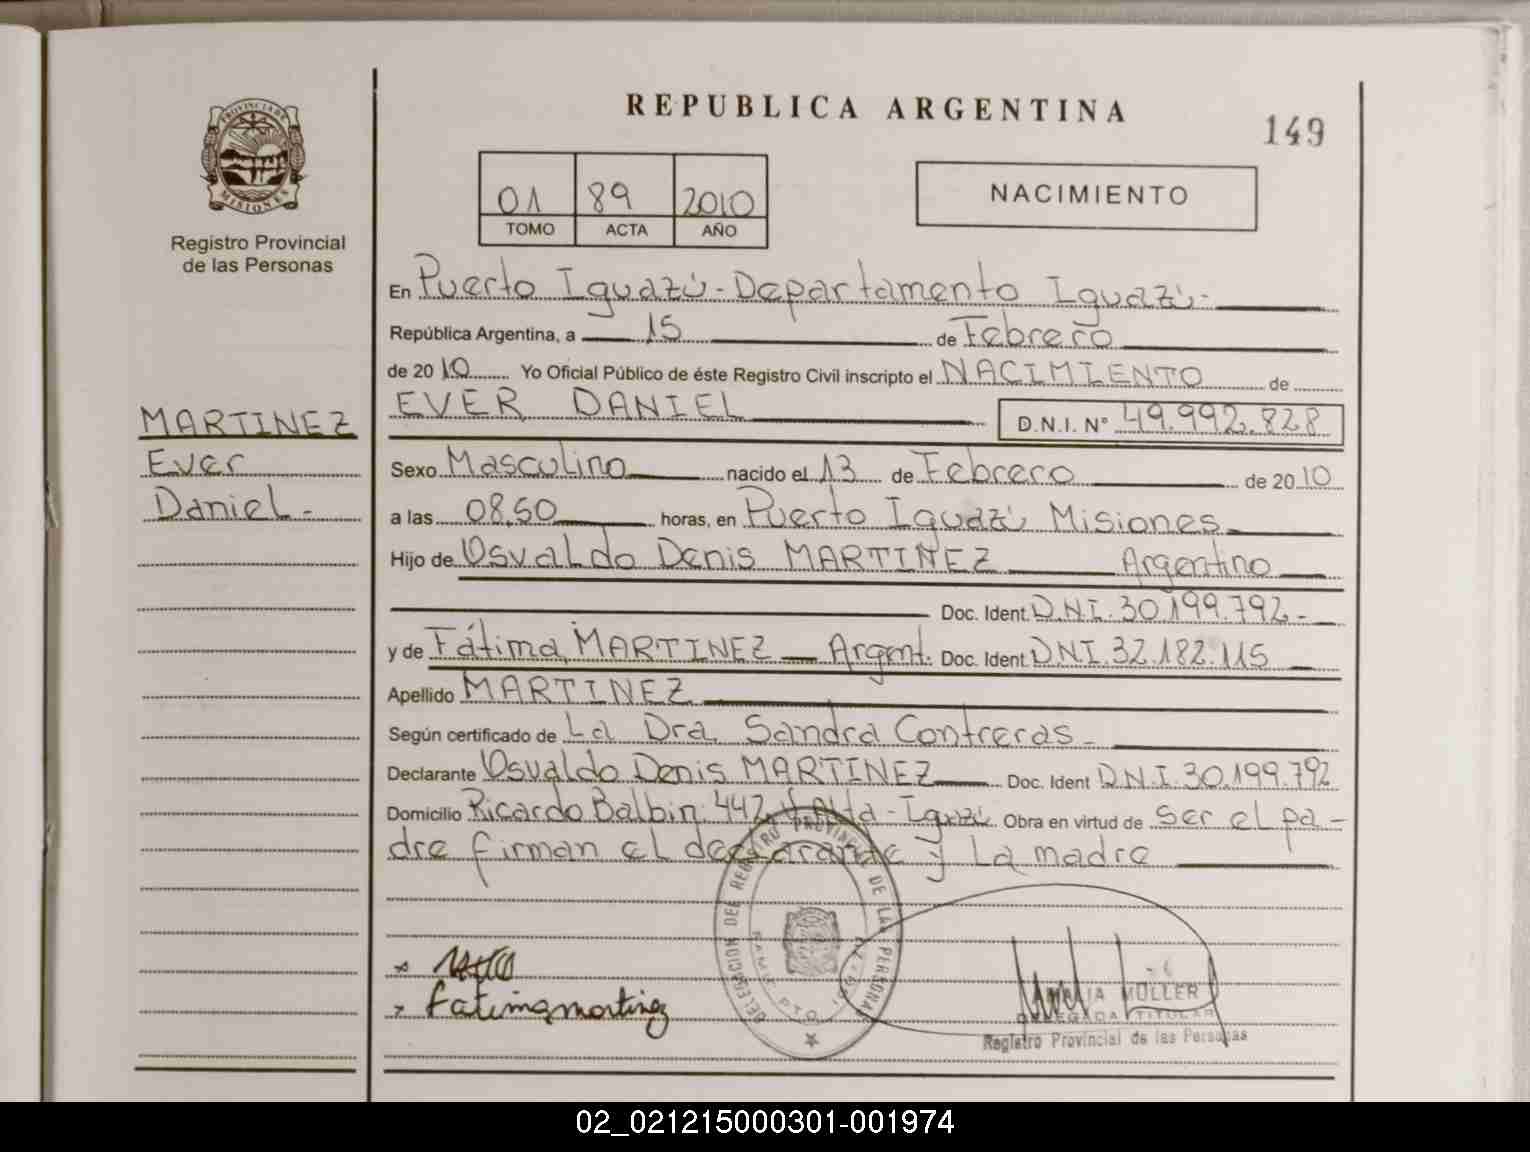 PROVINCIA DE
MISIONES
Registro Provincial
de las Personas
MARTINEZ
Ever
Daniel -
REPUBLICA ARGENTINA
149
01 89 2010
TOMO ACTA AÑO
NACIMIENTO
En Puerto Iguazú - Departamento Iguazú -
República Argentina, a 15 de Febrero
de 2010 Yo Oficial Público de éste Registro Civil inscripto el NACIMIENTO de
EVER DANIEL D.N.I. N° 49.992.828
Sexo Masculino nacido el 13 de Febrero de 2010
a las 08,50 horas, en Puerto Iguazú Misiones
Hijo de Osvaldo Denis MARTINEZ Argentino
Doc. Ident. D.N.I. 30.199.792 -
y de Fátima MARTINEZ Argent. Doc. Ident. DNI. 32.182.115
Apellido MARTINEZ
Según certificado de La Dra. Sandra Contreras -
Declarante Osvaldo Denis MARTINEZ Doc. Ident D.N.I. 30.199.792
Domicilio Ricardo Balbin. 442 - Iguazú Obra en virtud de ser el pa-
dre firman el declarante y la madre
DELEGACION DEL REGISTRO PROVINCIAL DE LAS PERSONAS
Fatima martinez
AMALIA MÜLLER
DELEGADA TITULAR
Registro Provincial de las Personas
02_021215000301-001974